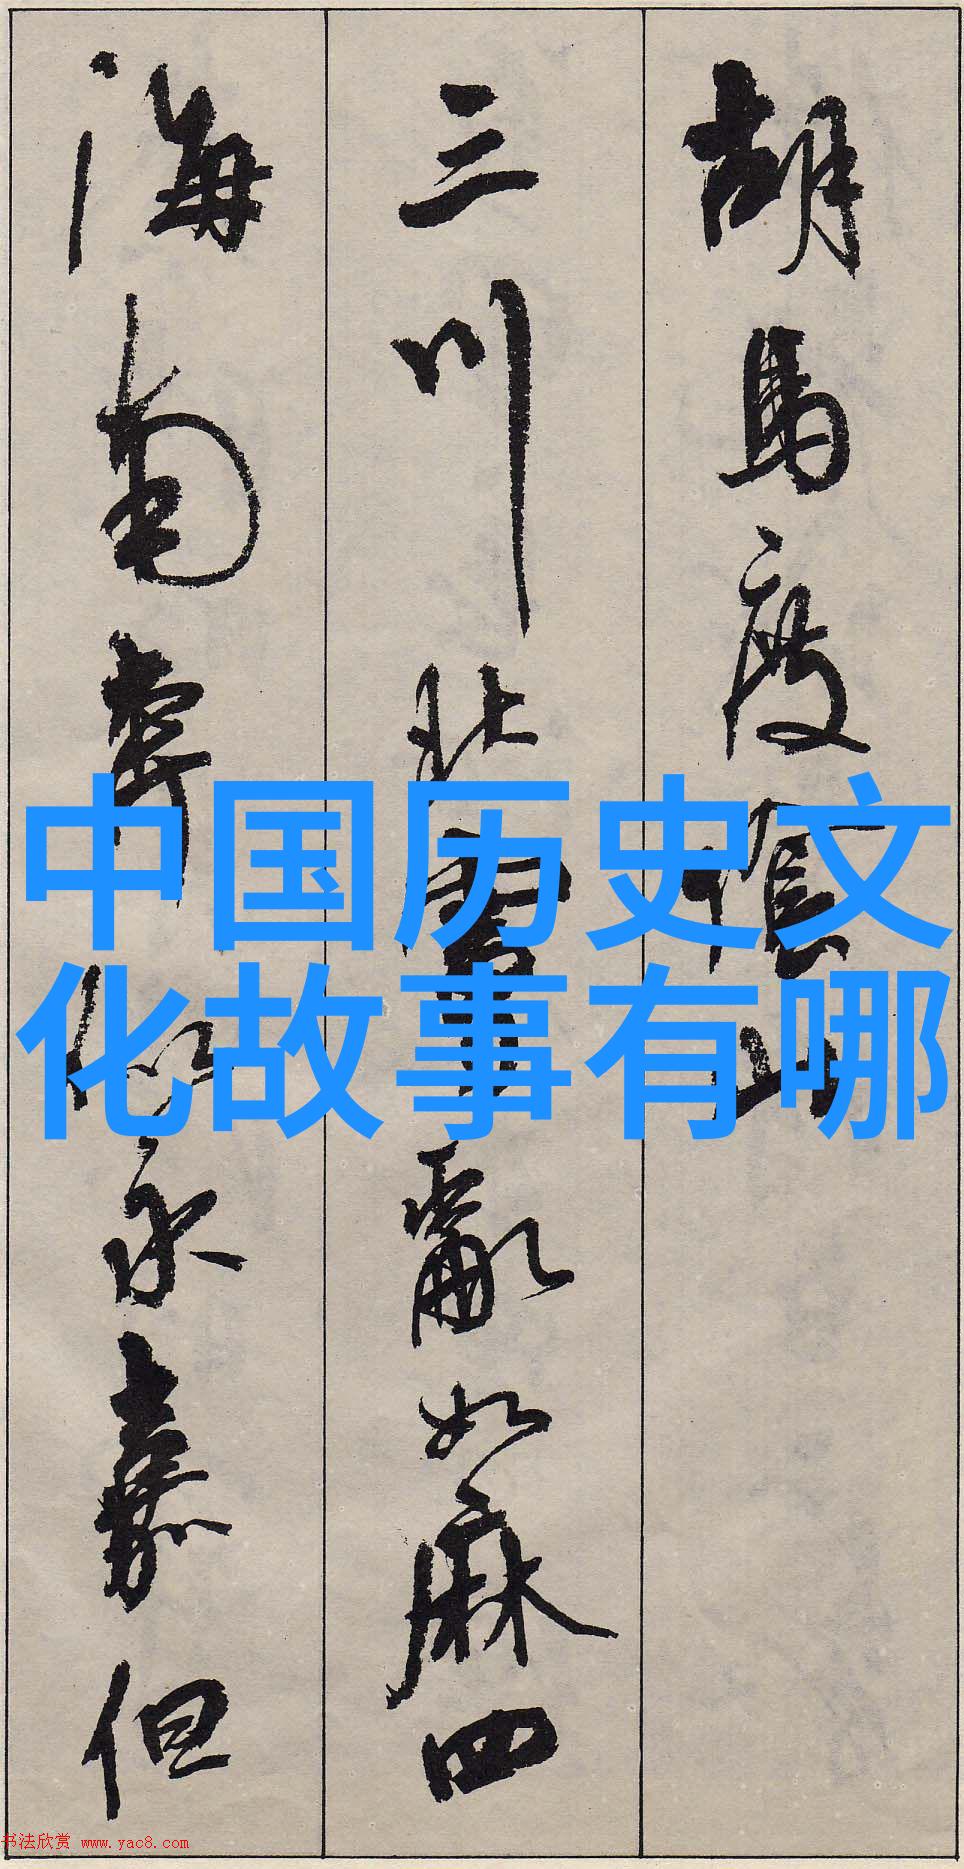 胡馬度陰山
三川北虜亂如麻四
海南奔似永嘉但
中国历史文
化故事有哪
书法欣赏 www.yac8.com